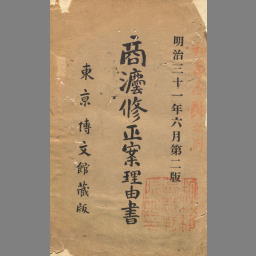 明治三十一年六月第二版
商灋修正案理由書
東京博文館蔵版